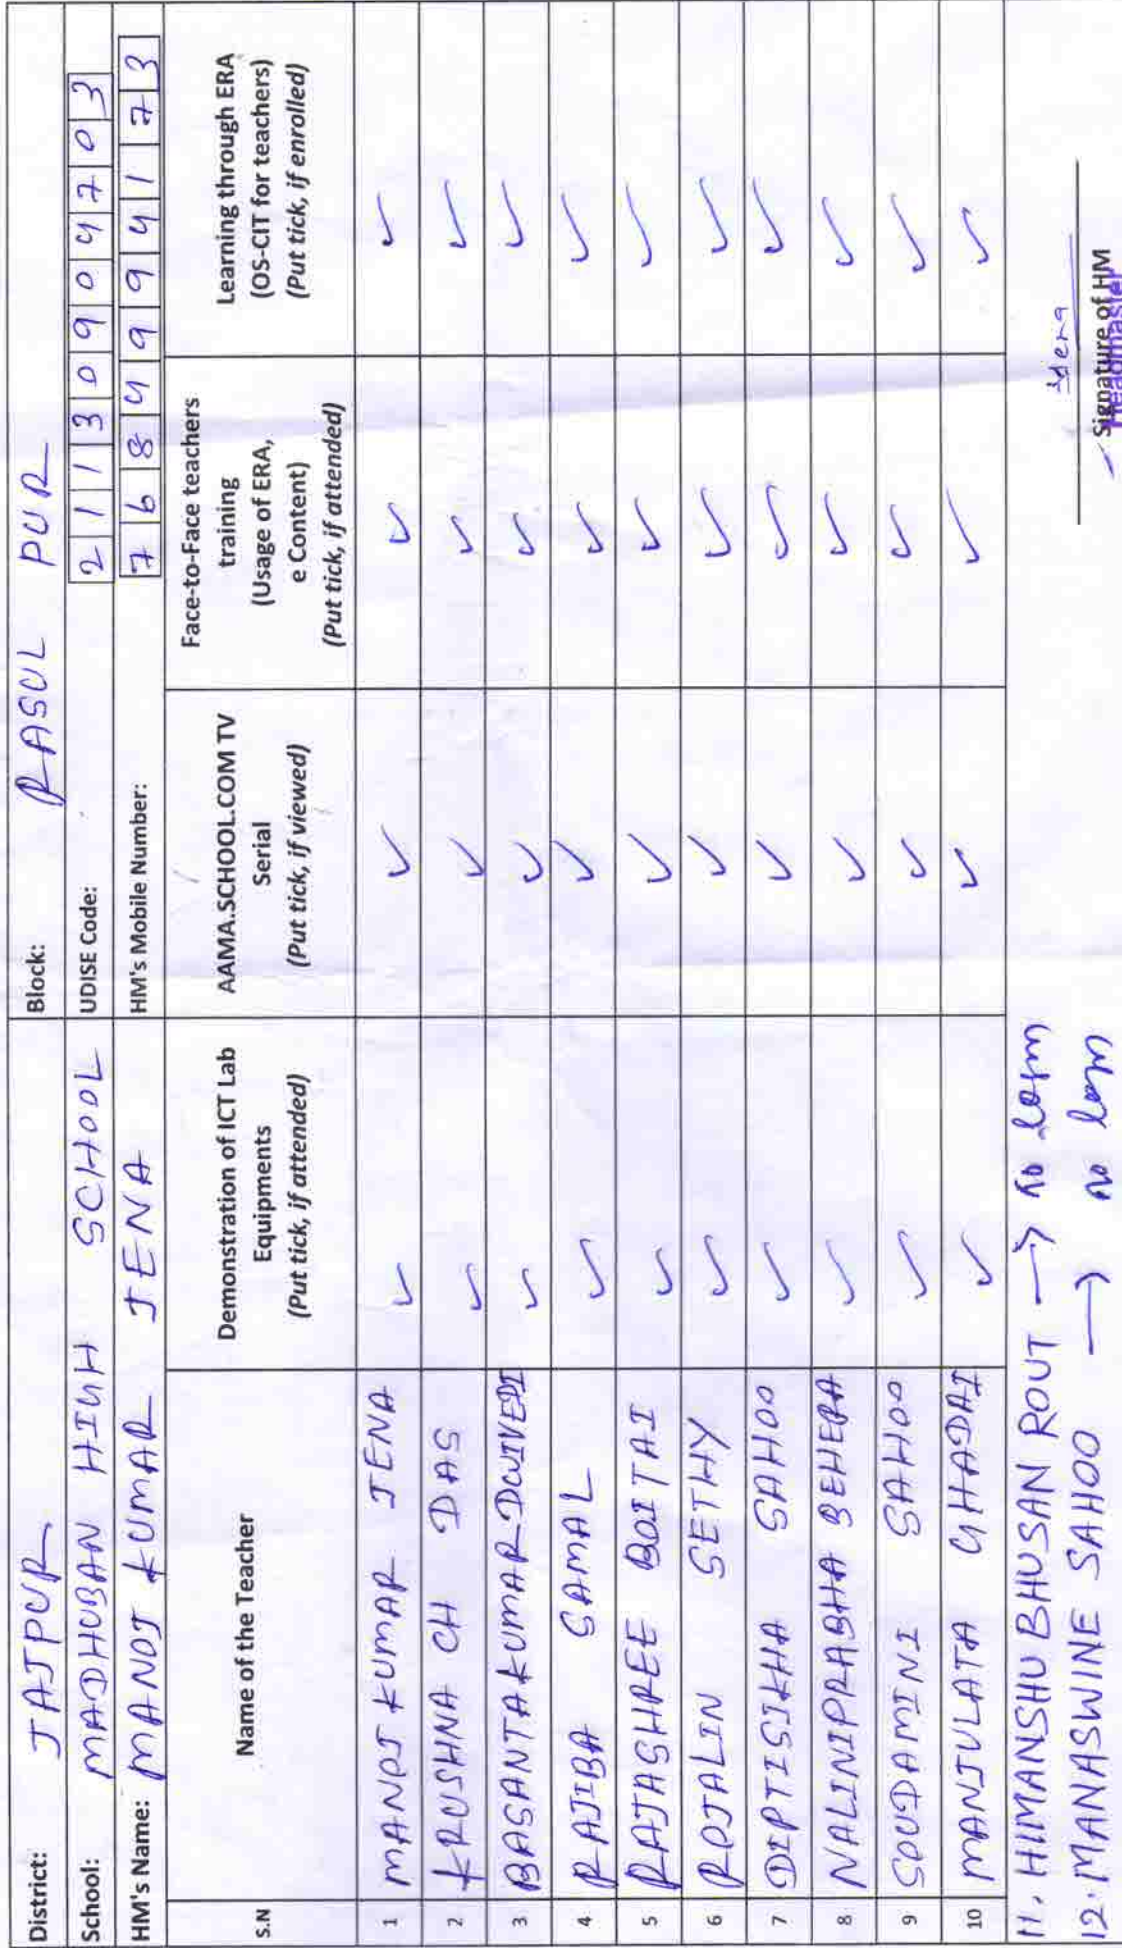 District: JAJPUR Block: RASUL PUR
School: MADHUBAN HIGH SCHOOL UDISE Code: 21130904703
HM's Name: MANOJ KUMAR JENA HM's Mobile Number: 7684994173
S.N Name of the Teacher Demonstration of ICT Lab Equipments (Put tick, if attended) AAMA.SCHOOL.COM TV Serial (Put tick, if viewed) Face-to-Face teachers training (Usage of ERA, e Content) (Put tick, if attended) Learning through ERA (OS-CIT for teachers) (Put tick, if enrolled)
1 MANOJ KUMAR JENA ✓ ✓ ✓ ✓
2 KRUSHNA CH DAS ✓ ✓ ✓ ✓
3 BASANTA KUMAR DWIVEDI ✓ ✓ ✓ ✓
4 RAJIBA SAMAL ✓ ✓ ✓ ✓
5 RAJASHREE BOITAI ✓ ✓ ✓ ✓
6 ROJALIN SETHY ✓ ✓ ✓ ✓
7 DIPTISIKHA SAHOO ✓ ✓ ✓ ✓
8 NALINIPRABHA BEHERA ✓ ✓ ✓ ✓
9 SOUDAMINI SAHOO ✓ ✓ ✓ ✓
10 MANJULATA GHADAI ✓ ✓ ✓ ✓
11. HIMANSHU BHUSAN ROUT → no
12. MANASWINE SAHOO → no
Signature of HM
Headmaster